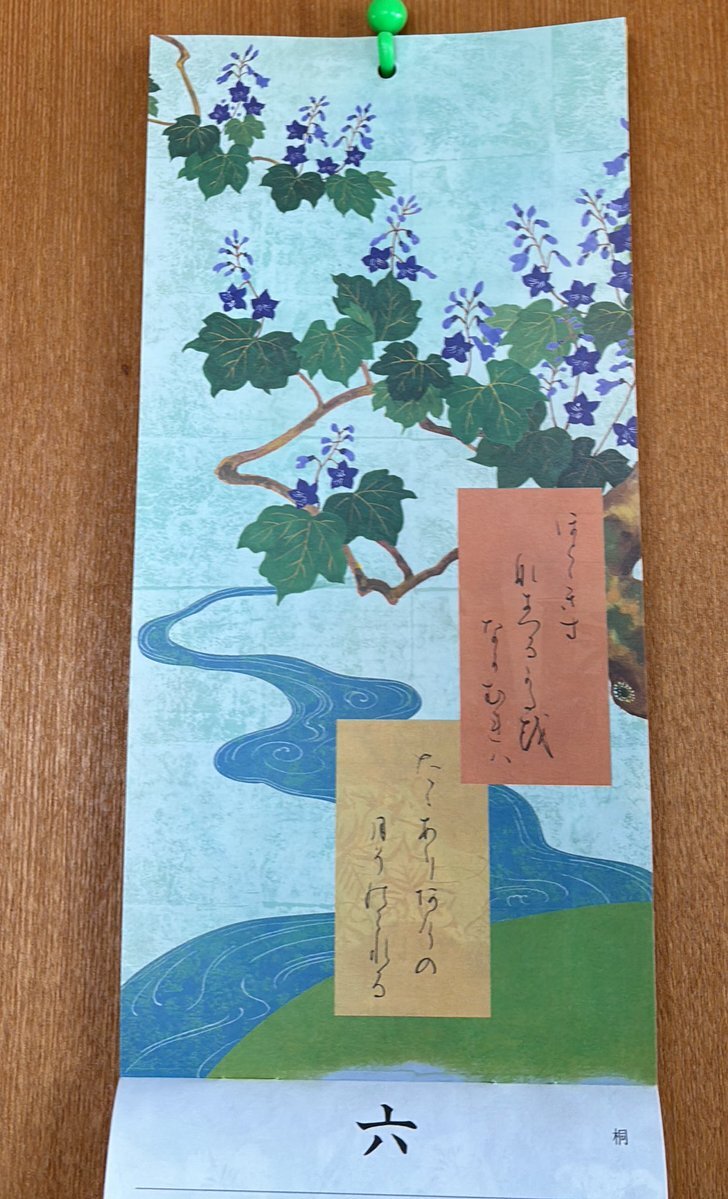 ほとゝきす
なきつるかたを
なかむれは
たゝありあけの
月そのこれる
六
桐